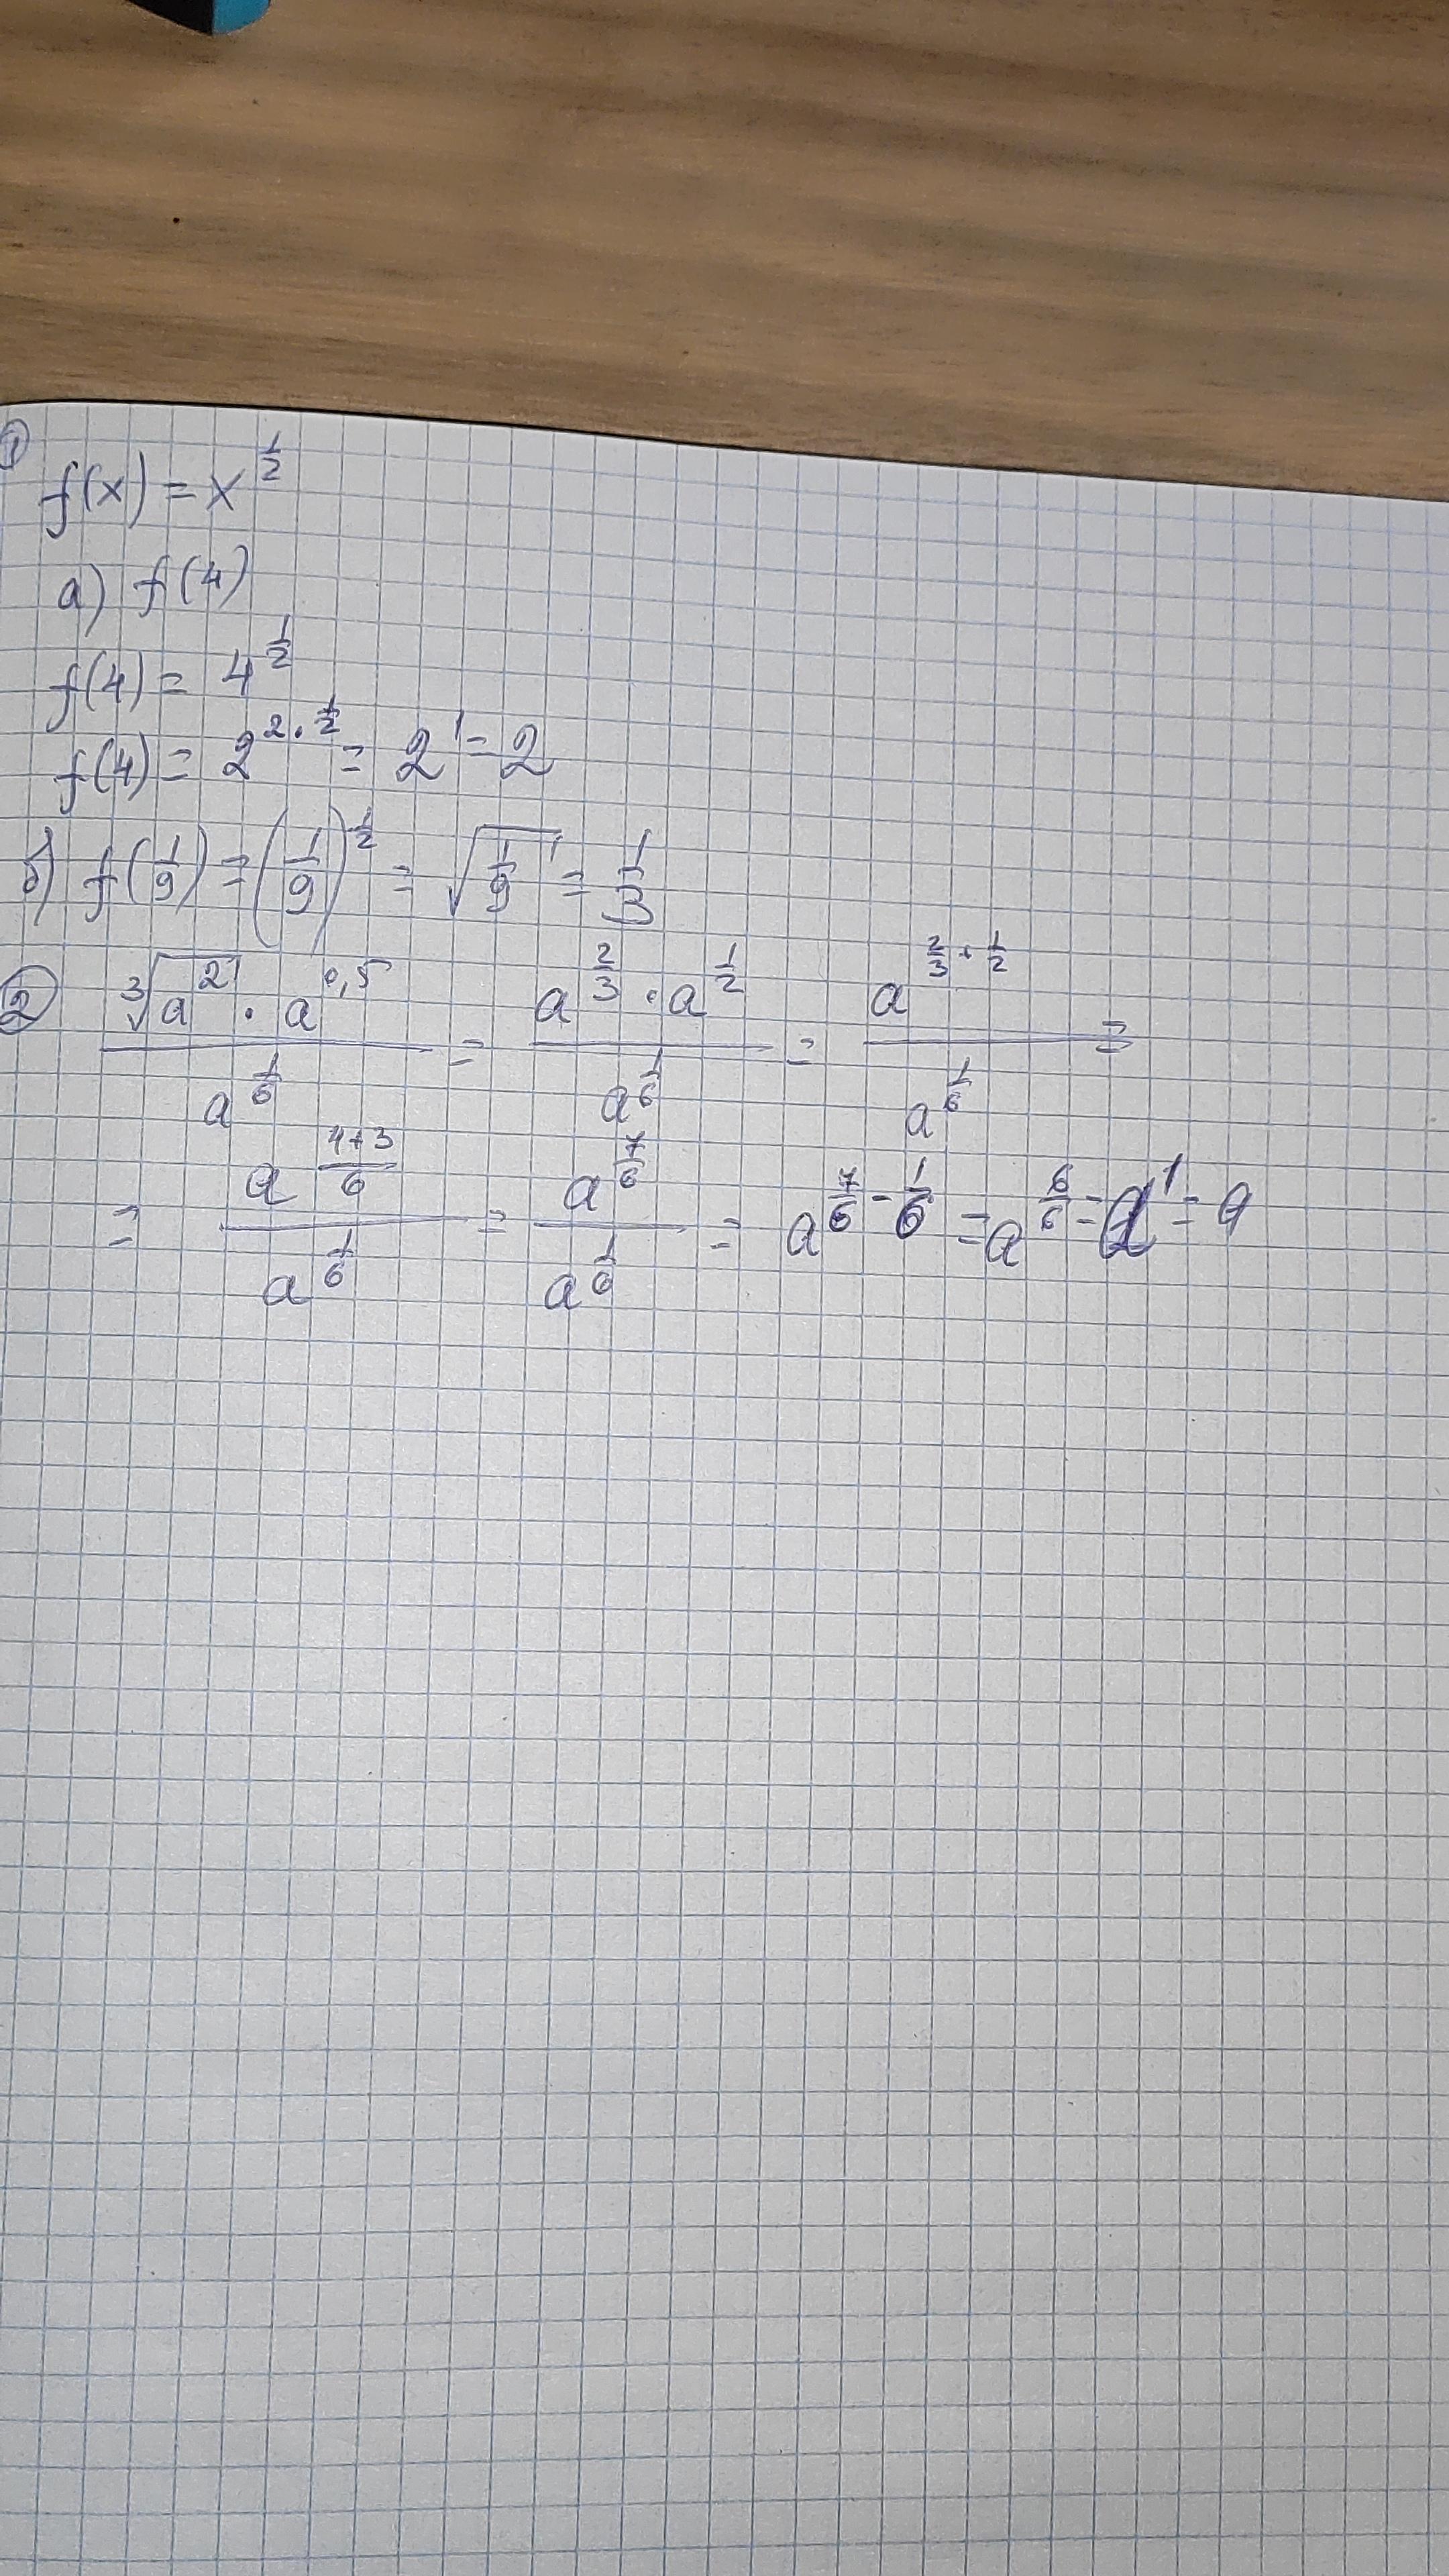 ① f(x) = x^(1/2)
а) f(4)
f(4) = 4^(1/2)
f(4) = 2^(2·1/2) = 2^1 = 2
б) f(1/9) = (1/9)^(1/2) = √(1/9) = 1/3
② (∛(a^2) · a^(0,5))/(a^(1/6)) = (a^(2/3) · a^(1/2))/(a^(1/6)) = (a^(2/3 + 1/2))/(a^(1/6)) =
= (a^((4+3)/6))/(a^(1/6)) = (a^(7/6))/(a^(1/6)) = a^(7/6 - 1/6) = a^(6/6) = a^1 = a